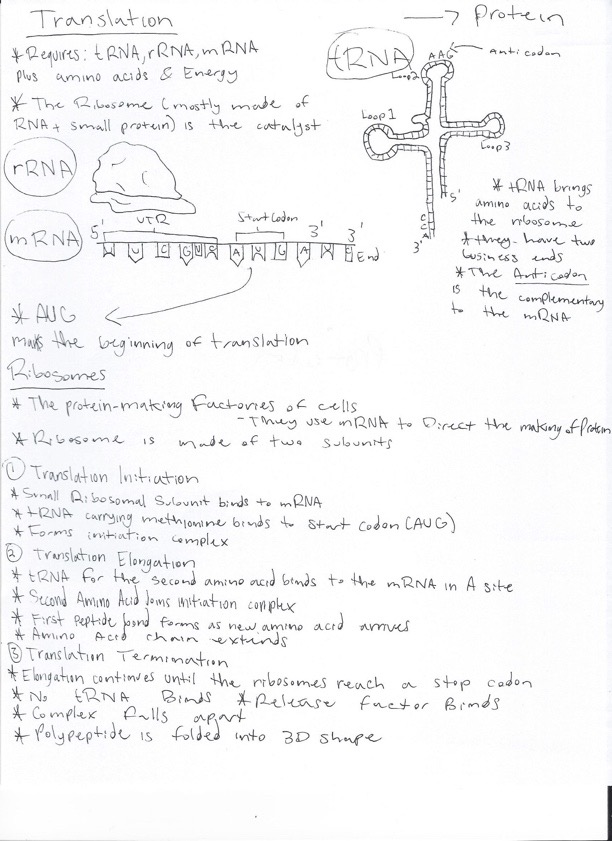 Translation → Protein
* Requires: tRNA, rRNA, mRNA
plus amino acids & Energy
* The Ribosome (mostly made of
RNA + small protein) is the catalyst
tRNA
AAG
Anticodon
Loop 2
Loop 1
Loop 3
5'
C
C
A
3'
* tRNA brings
amino acids to
the ribosome
* they have two
business ends
* The Anticodon
is the complementary
to the mRNA
rRNA
mRNA
UTR
Start Codon
5' 3' 3'
U C G A U G A
End
* AUG
marks the beginning of translation
Ribosomes
* The protein-making factories of cells
- They use mRNA to Direct the making of Protein
* Ribosome is made of two subunits
① Translation Initiation
* Small Ribosomal Subunit binds to mRNA
* tRNA carrying methionine binds to start codon (AUG)
* Forms initiation complex
② Translation Elongation
* tRNA for the second amino acid binds to the mRNA in A site
* Second Amino Acid Joins initiation complex
* First peptide bond forms as new amino acid arrives
* Amino Acid chain extends
③ Translation Termination
* Elongation continues until the ribosomes reach a stop codon
* No tRNA Binds * Release Factor Binds
* Complex falls apart
* Polypeptide is folded into 3D shape